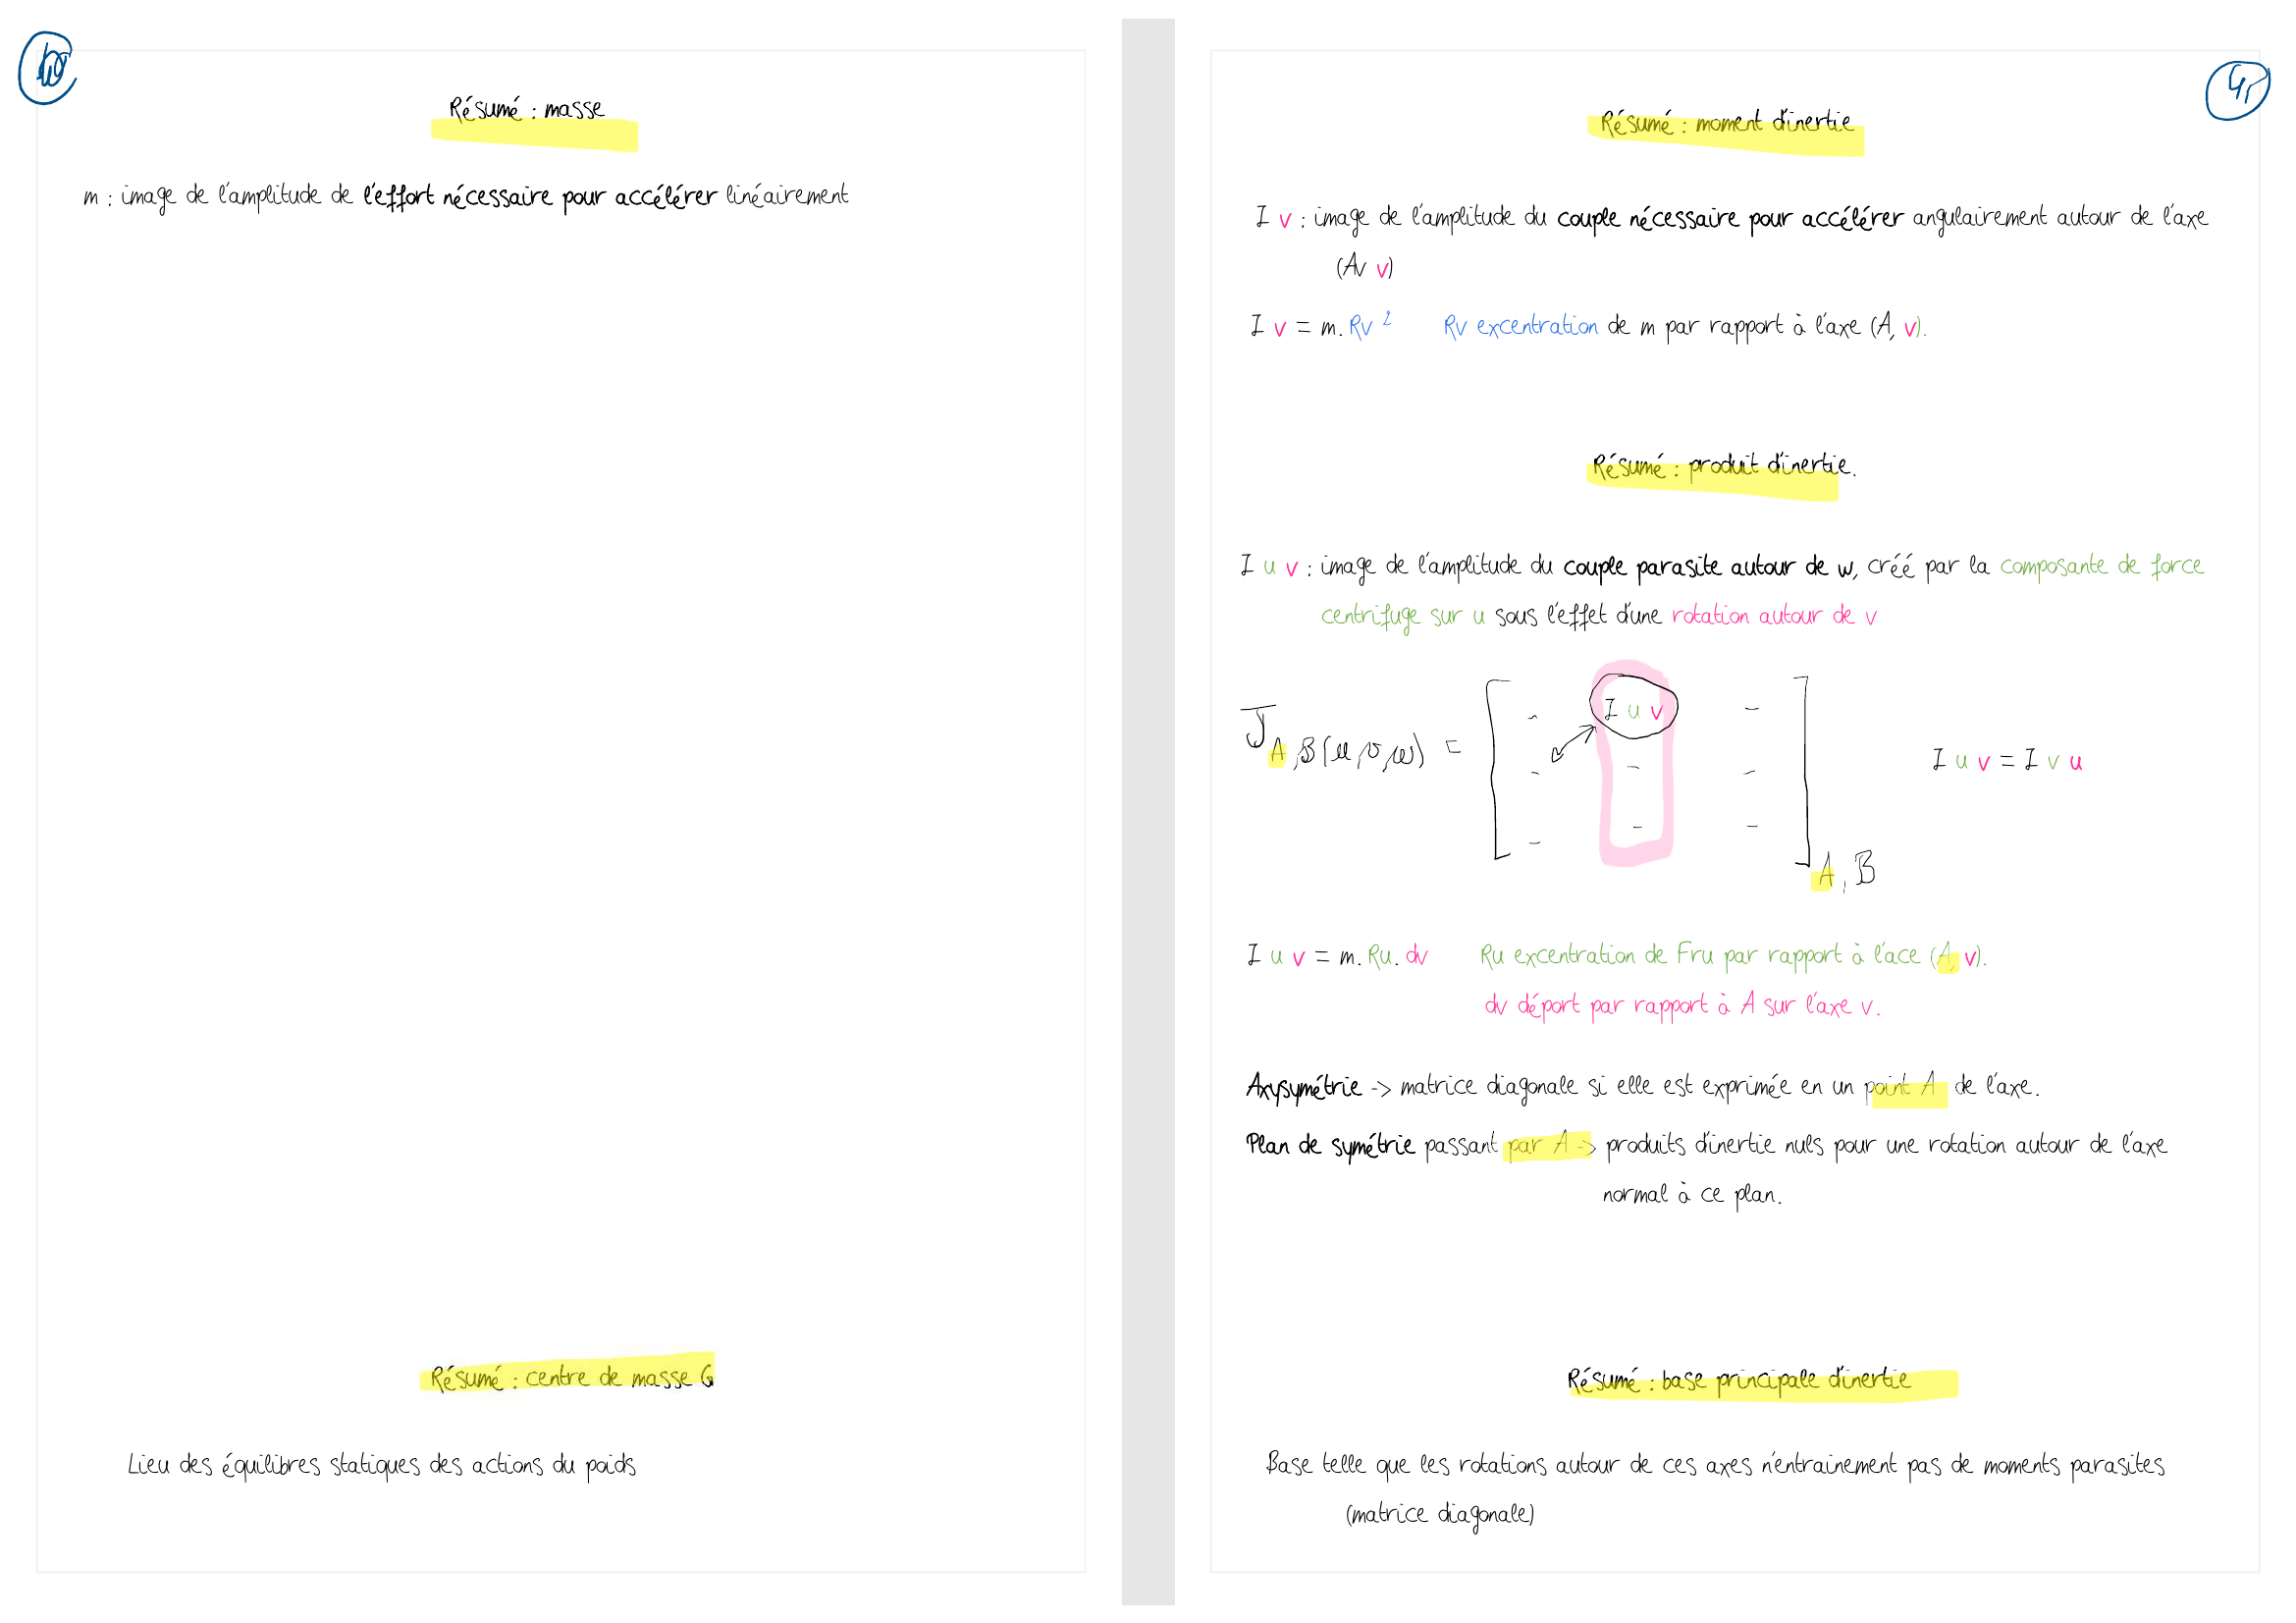 Résumé : masse
m : image de l'amplitude de l'effort nécessaire pour accélérer linéairement
Résumé : centre de masse G
Lieu des équilibres statiques des actions du poids
Résumé : moment d'inertie
I v : image de l'amplitude du couple nécessaire pour accélérer angulairement autour de l'axe
(Av v)
I v = m. Rv ² Rv excentration de m par rapport à l'axe (A, v).
Résumé : produit d'inertie.
I u v : image de l'amplitude du couple parasite autour de w, créé par la composante de force
centrifuge sur u sous l'effet d'une rotation autour de v
- I u v -
J A,B(u,v,w) = - - - I u v = I v u
- - -
A, B
I u v = m. Ru. dv Ru excentration de Fru par rapport à l'ace (A, v).
dv déport par rapport à A sur l'axe v.
Axysymétrie -> matrice diagonale si elle est exprimée en un point A de l'axe.
Plan de symétrie passant par A -> produits d'inertie nuls pour une rotation autour de l'axe
normal à ce plan.
Résumé : base principale d'inertie
Base telle que les rotations autour de ces axes n'entrainement pas de moments parasites
(matrice diagonale)